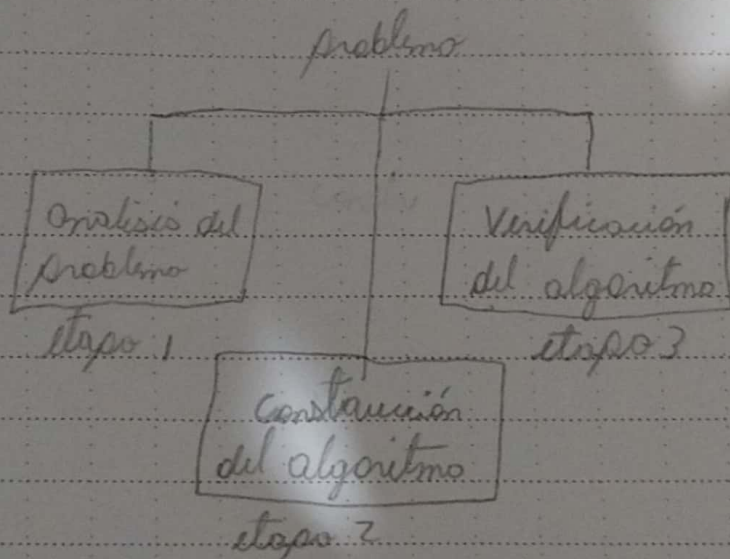 problema
analisis del
problema
etapa 1
Verificación
del algoritmo
etapa 3
Construcción
del algoritmo
etapa 2